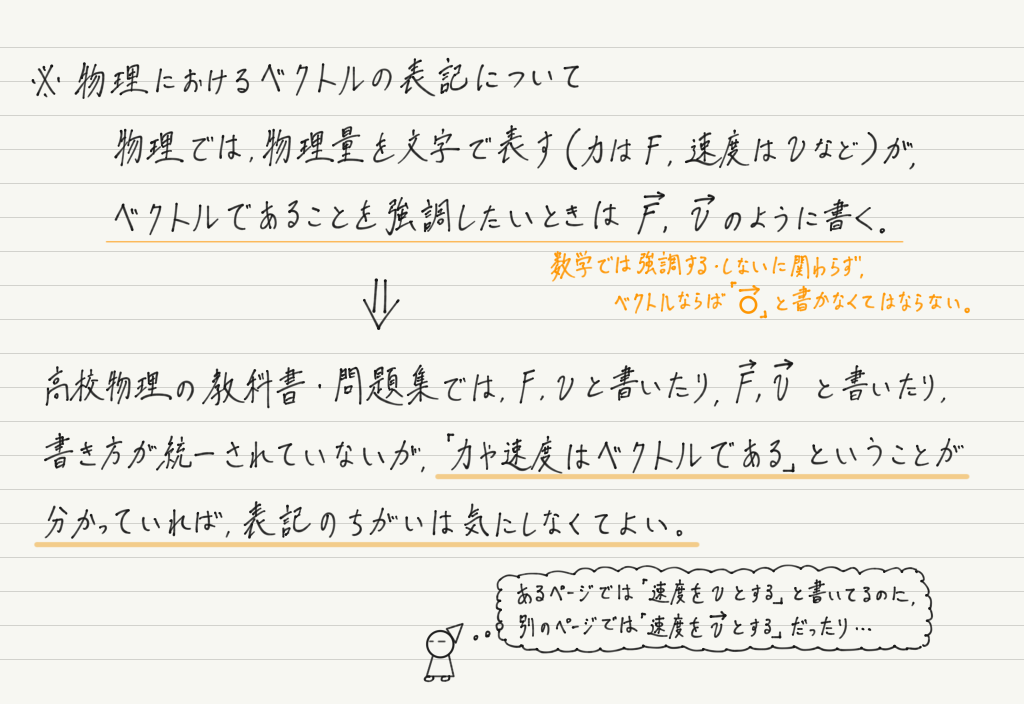 ※ 物理におけるベクトルの表記について
物理では,物理量を文字で表す(力はF,速度はvなど)が,
ベクトルであることを強調したいときは F⃗, v⃗ のように書く。
数学では強調する・しないに関わらず,
ベクトルならば「○⃗」と書かなくてはならない。
⇓
高校物理の教科書・問題集では,F,vと書いたり,F⃗,v⃗ と書いたり,
書き方が統一されていないが,「力や速度はベクトルである」ということが
分かっていれば,表記のちがいは気にしなくてよい。
あるページでは「速度をvとする」と書いてるのに,
別のページでは「速度をv⃗とする」だったり…